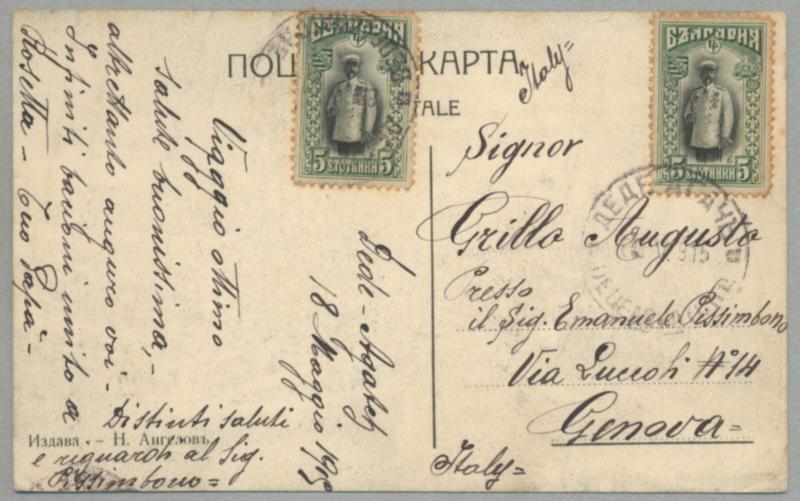 ПОЩ КАРТА
TALE
БЪЛГАРИЯ
5 СТОТИНКИ 5
БЪЛГАРИЯ
5 СТОТИНКИ 5
ДЕДЕ АГАЧЪ
1915
Italy=
Signor
Grillo Augusto
Presso
il Sig. Emanuele Pissimbono
Via Luccoli Nº 14
Genova=
Italy=
Dede-Agatch
18 Maggio 1915
Viaggio ottimo
salute buonissima,-
altrettanto auguro voi-
Infiniti bacioni unito a
Rosetta- Tuo Papà-
Distinti saluti
e riguardi al Sig.
Pissimbono=
Издава - Н. Ангеловъ